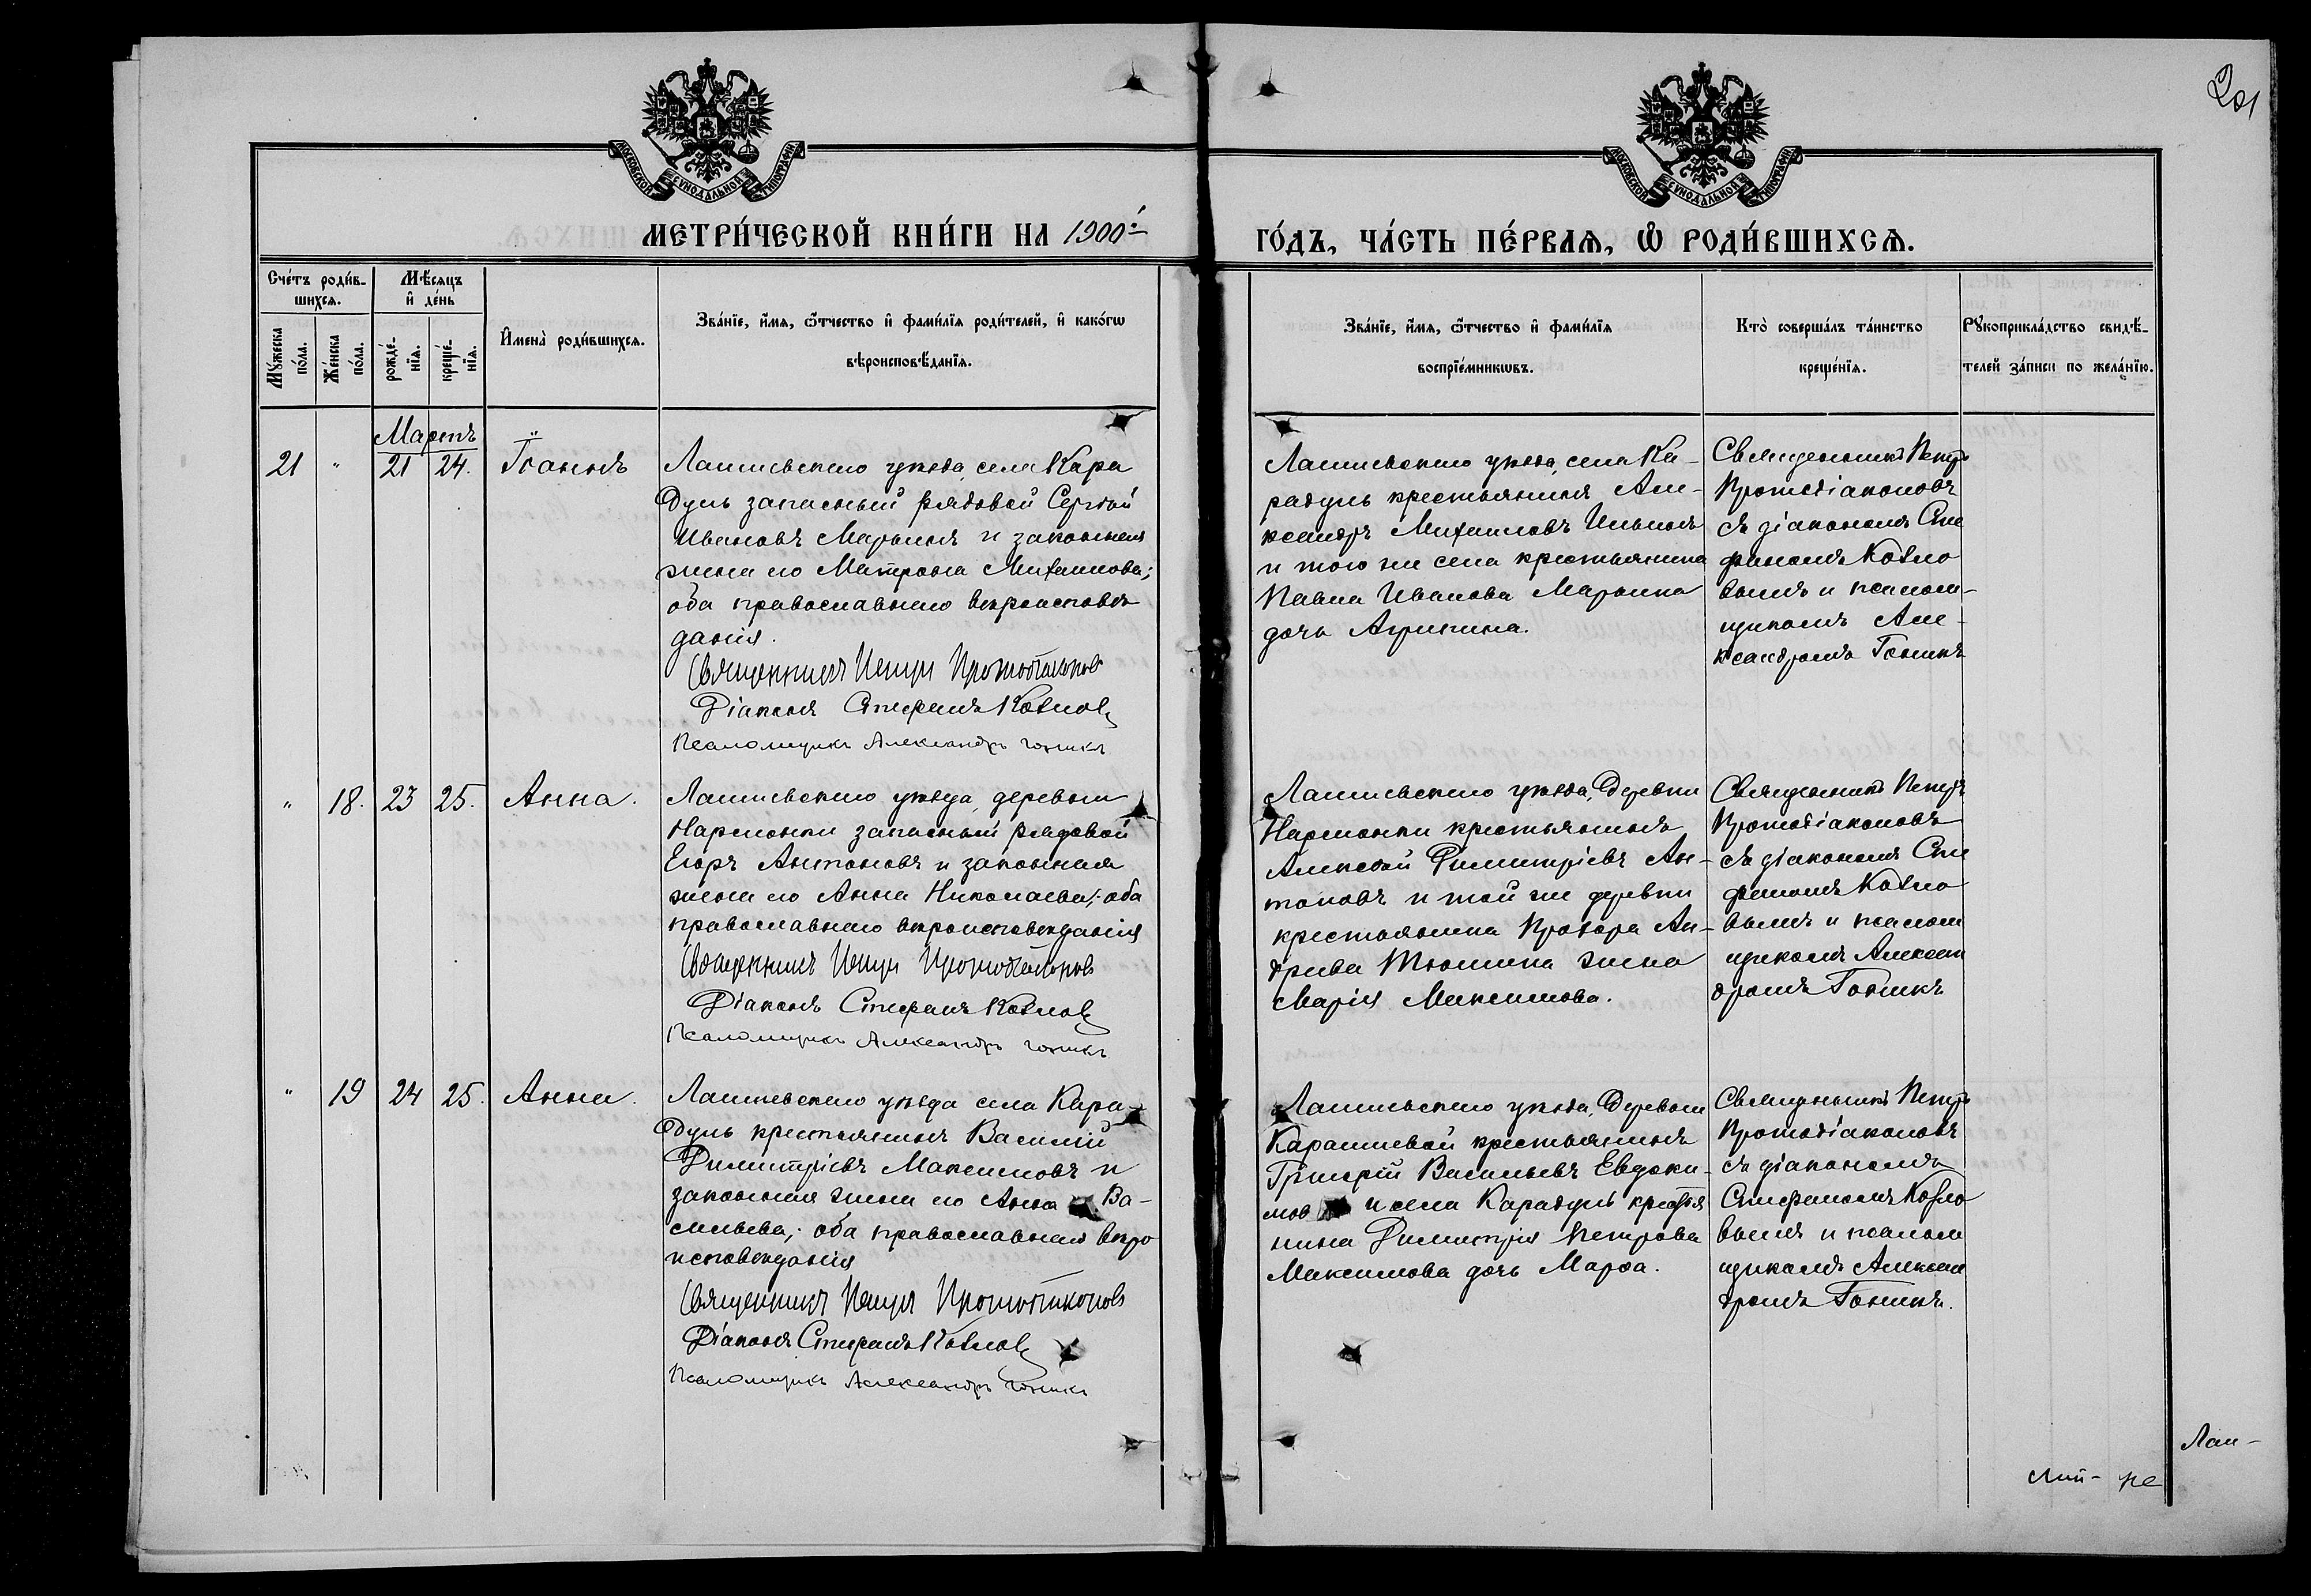 201
МОСКОВСКОЙ СУНОДАЛЬНОЙ ТИПОГРАФІИ
МОСКОВСКОЙ СУНОДАЛЬНОЙ ТИПОГРАФІИ
МЕТРИ́ЧЕСКОЙ КНИ́ГИ НА 1900й
ГО́ДЪ, ЧА́СТЬ ПЕ́РВАЯ, Ѡ РОДИ́ВШИХСѦ.
Сче́тъ роди́в-
шихся.
Мꙋ́жеска по́ла.
Же́нска по́ла.
Мѣ́сяцъ
и҆ де́нь
рожде́-
нїя.
креще́-
нїя.
И҆мена̀ роди́вшихся.
Зва́нїе, и҆́мя, ѻ҆́тчество и҆ фами́лїя роди́телей, и҆ како́гѡ
вѣроисповѣ́данїя.
Зва́нїе, и҆́мя, ѻ҆́тчество и҆ фами́лїя
воспрїе́мникѡвъ.
Кто̀ соверша́лъ та́инство
креще́нїя.
Рꙋкоприкла́дство свидѣ́-
телей за́писи по жела́нїю.
Мартъ
21 " 21 24. Іоаннъ
Лаишевскаго уѣзда, села Кара
дуль запасный рядовой Сергѣй
Ивановъ Марьинъ и законная
жена его Матрона Михаилова;
оба православнаго вѣроисповѣ
данія.
Священникъ Петръ Протодіаконовъ
Діаконъ Стефанъ Козлов
Псаломщикъ Александръ Гоникъ
Лаишевскаго уѣзда, села Ка-
радуль крестьянинъ Але-
ксандръ Михаиловъ Ильинъ
и того же села крестьянина
Павла Иванова Марьина
дочь Агрипина.
Священникъ Петръ
Протодіаконовъ
съ діакономъ Сте
фаномъ Козло
вымъ и псалом-
щикомъ Але-
ксандромъ Гоникъ
" 18. 23 25. Анна.
Лаишевскаго уѣзда, деревни
Нармонки запасный рядовой
Егоръ Антоновъ и законная
жена его Анна Николаева; оба
православнаго вѣроисповѣданія
Священникъ Петръ Протодіаконовъ
Діаконъ Стефанъ Козлов
Псаломщикъ Александръ Гоникъ
Лаишевскаго уѣзда, деревни
Нармонки крестьянинъ
Алексѣй Димитріевъ Ан-
тоновъ и той же деревни
крестьянина Прохора Ан-
дреева Тюшина жена
Марія Максимова.
Священникъ Петръ
Протодіаконовъ
съ діакономъ Сте
фаномъ Козло
вымъ и псалом
щикомъ Алексан
дромъ Гоникъ
" 19 24 25. Анна.
Лаишевскаго уѣзда села Кара-
дуль крестьянинъ Василій
Димитріевъ Максимовъ и
законная жена его Анна Ва-
сильева; оба православнаго вѣро
исповѣданія
Священникъ Петръ Протодіаконовъ
Діаконъ Стефанъ Козлов
Псаломщикъ Александръ Гоникъ
Лаишевскаго уѣзда, деревни
Караишевой крестьянинъ
Григорій Васильевъ Евдоки-
мов и села Карадуль крестья
нина Димитрія Петрова
Максимова дочь Марѳа.
Священникъ Петръ
Протодіаконовъ
съ діакономъ
Стефаномъ Козло
вымъ и псалом
щикомъ Алексан
дромъ Гоникъ.
Лаи-